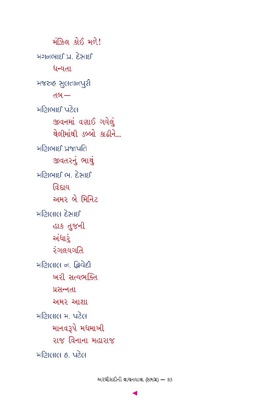 મંઝિલ કોઈ મળે!
મગનભાઈ પ્ર. દેસાઈ
ધન્યતા
મજરુહ સુલતાનપુરી
તબ—
મણિભાઈ પટેલ
જીવનમાં વણાઈ ગયેલું
થેલીમાંથી ડબ્બો કાઢીને...
મણિભાઈ પ્રજાપતિ
જીવતરનું ભાથું
મણિભાઈ ભ. દેસાઈ
વિદાય
અમર બે મિનિટ
મણિલાલ દેસાઈ
હાક તુજની
અંધારું
રંગલયગતિ
મણિલાલ ન. દ્વિવેદી
ખરી સત્યભક્તિ
પ્રસન્નતા
અમર આશા
મણિલાલ મ. પટેલ
માનવરૂપે મધમાખી
રાજ વિનાના મહારાજ
મણિલાલ હ. પટેલ
અરધીસદીની વાચનયાત્રા (સમગ્ર) — 53